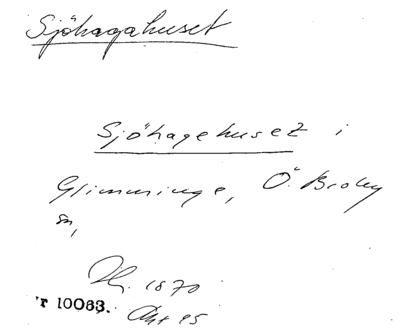 Sjöhagahuset
Sjöhagehuset i
Glimminge, Ö. Broby
sn,
1870
r 10063. Akt 95